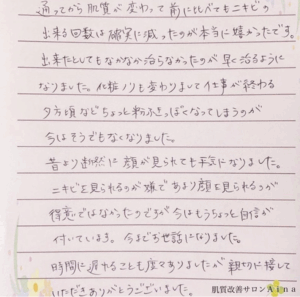 通ってから肌質が変わって前に比べてもニキビの
出来る回数は確実に減ったのが本当に嬉しかったです。
出来たとしてもなかなか治らなかったのが早く治るように
なりました。化粧ノリも変わりまして仕事が終わる
夕方頃などちょっと粉ふきっぽくなってしまうのが
今はそうでもなくなりました。
昔より断然に顔が見られても平気になりました。
ニキビを見られるのが嫌であまり顔を見られるのが
得意ではなかったのですが今はもうちょっと自信が
付いています。今までお世話になりました。
時間に遅れることも度々ありましたが親切に接して
いただきありがとうございました。
肌質改善サロンAina